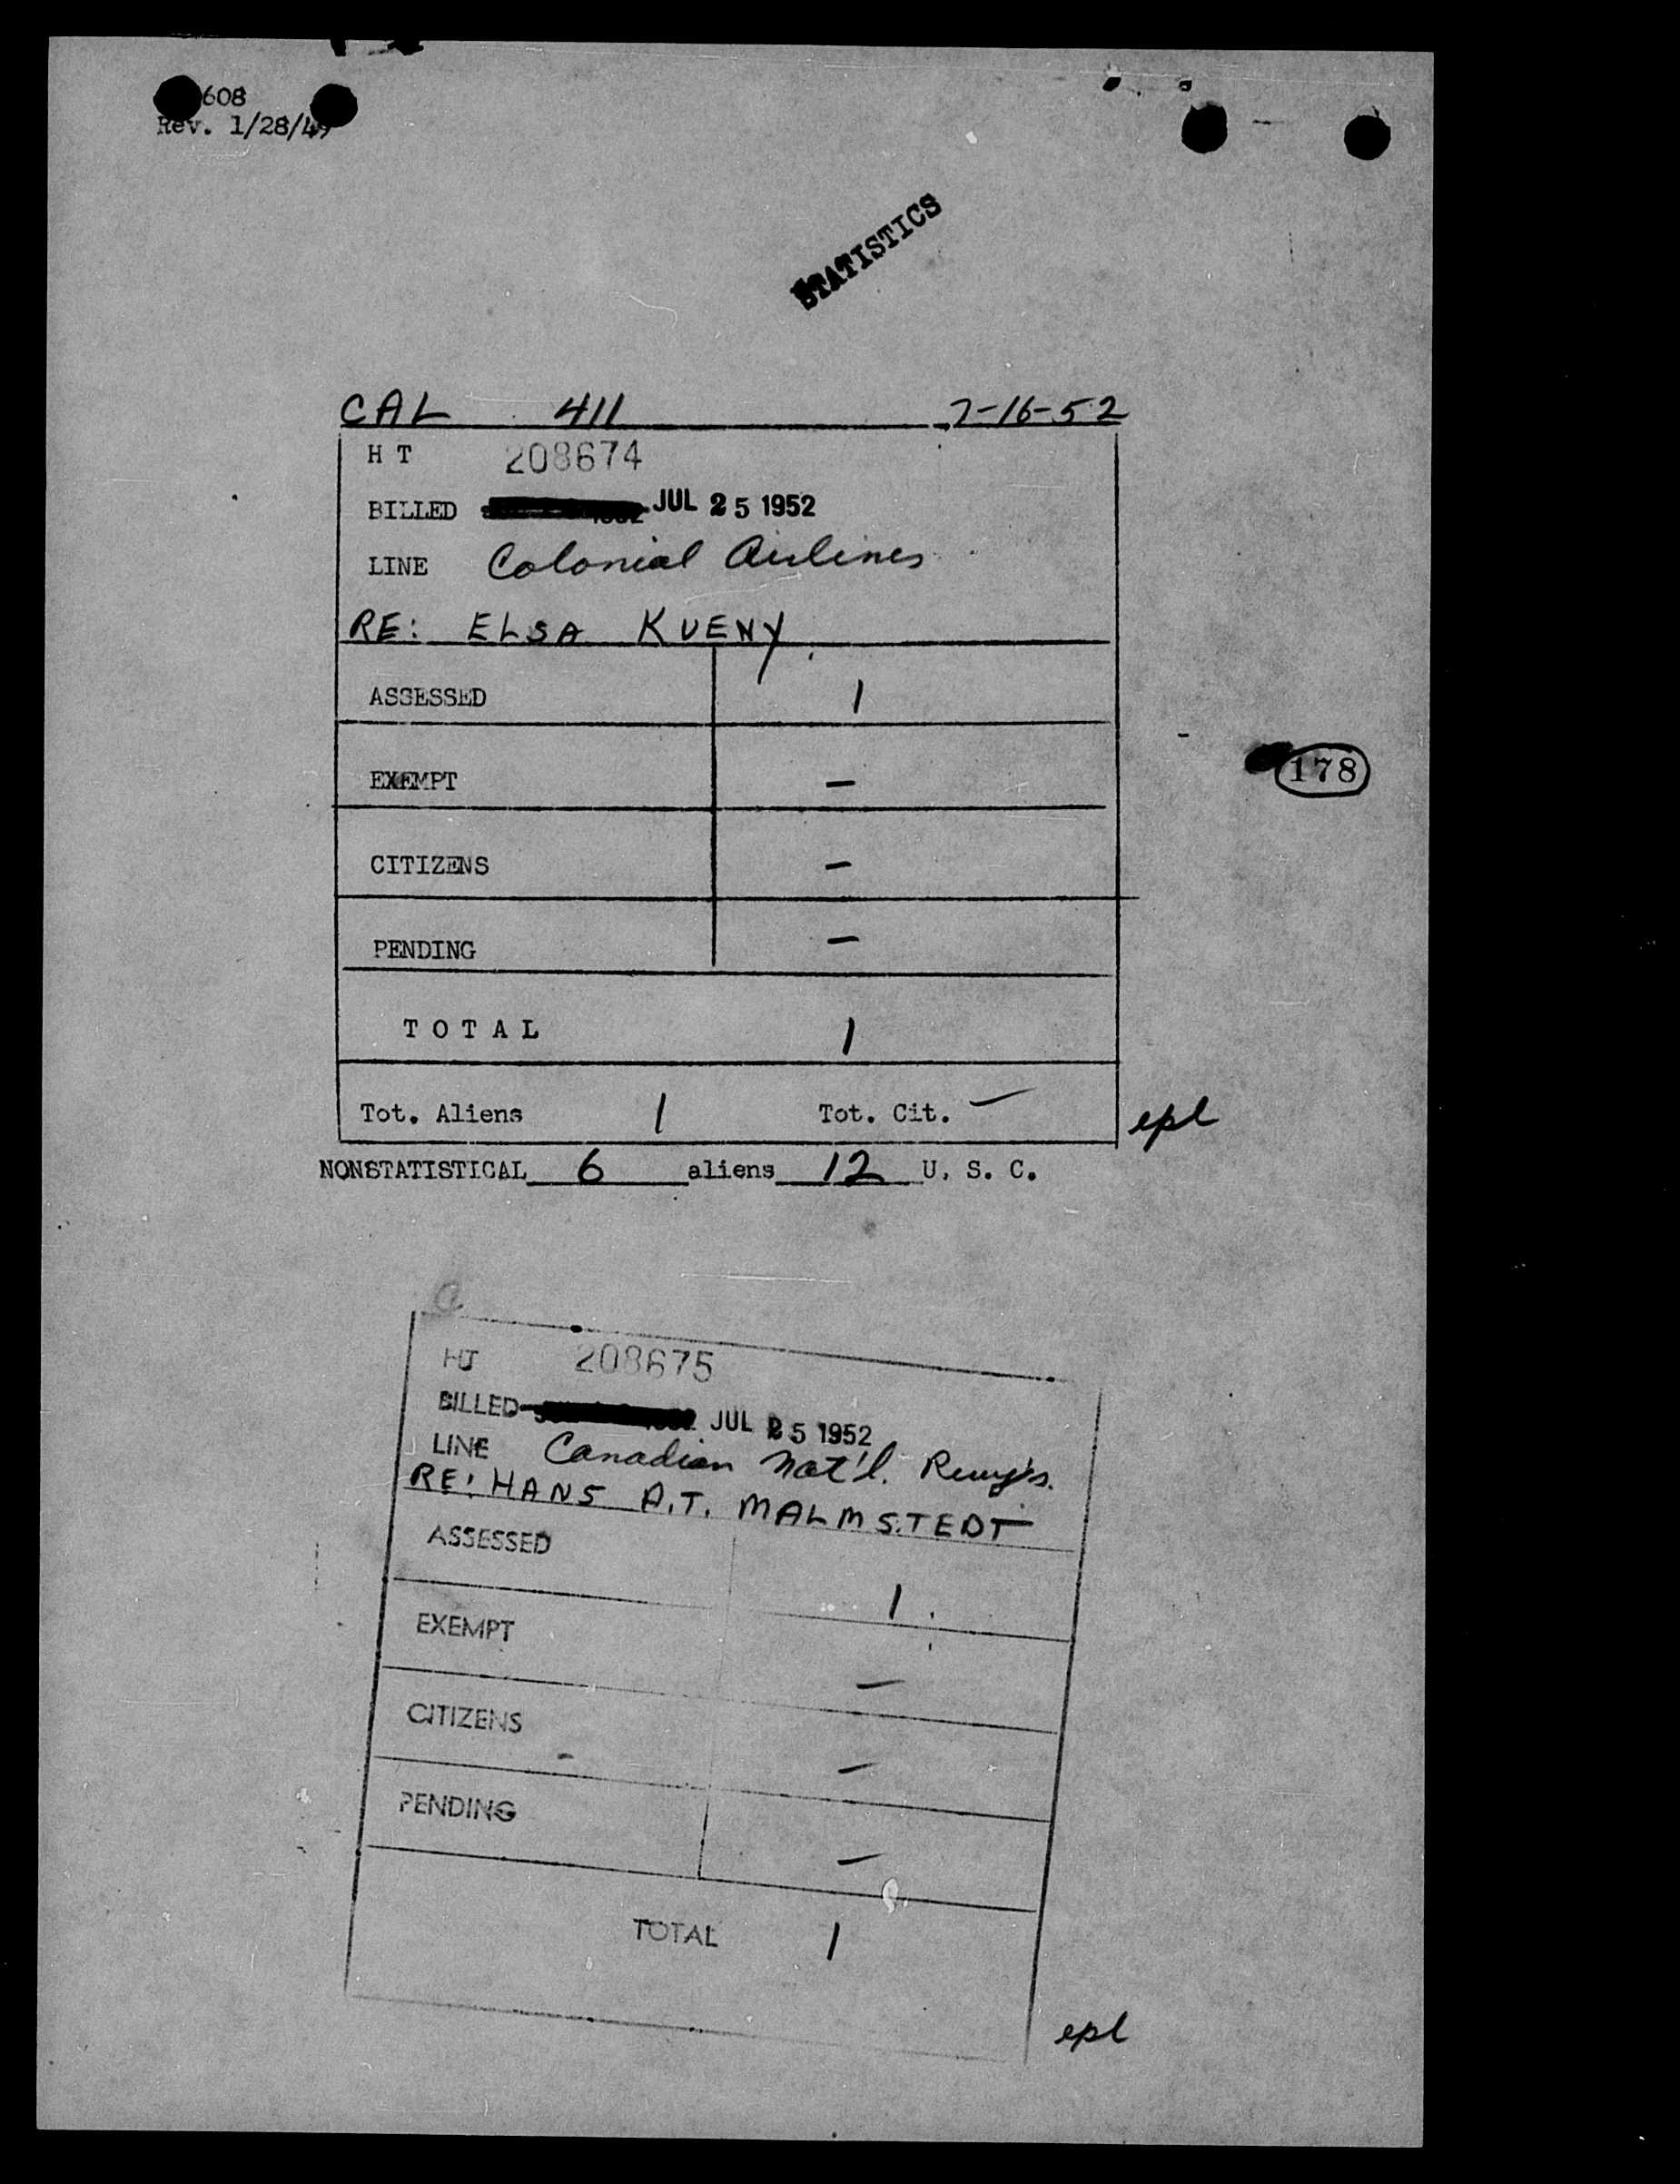 608
Rev. 1/28/49
STATISTICS
CAL 411 7-16-52
H T 208674
BILLED JUL 25 1952
LINE Colonial Airlines
RE: ELSA KUENY
ASSESSED 1
EXEMPT —
CITIZENS —
PENDING —
178
TOTAL 1
Tot. Aliens 1 Tot. Cit. —
epl
NONSTATISTICAL 6 aliens 12 U. S. C.
HT 208675
BILLED JUL 25 1952
LINE Canadian Nat'l. Rwy's.
RE: HANS A.T. MALMSTEDT
ASSESSED 1
EXEMPT —
CITIZENS —
PENDING —
TOTAL 1
epl